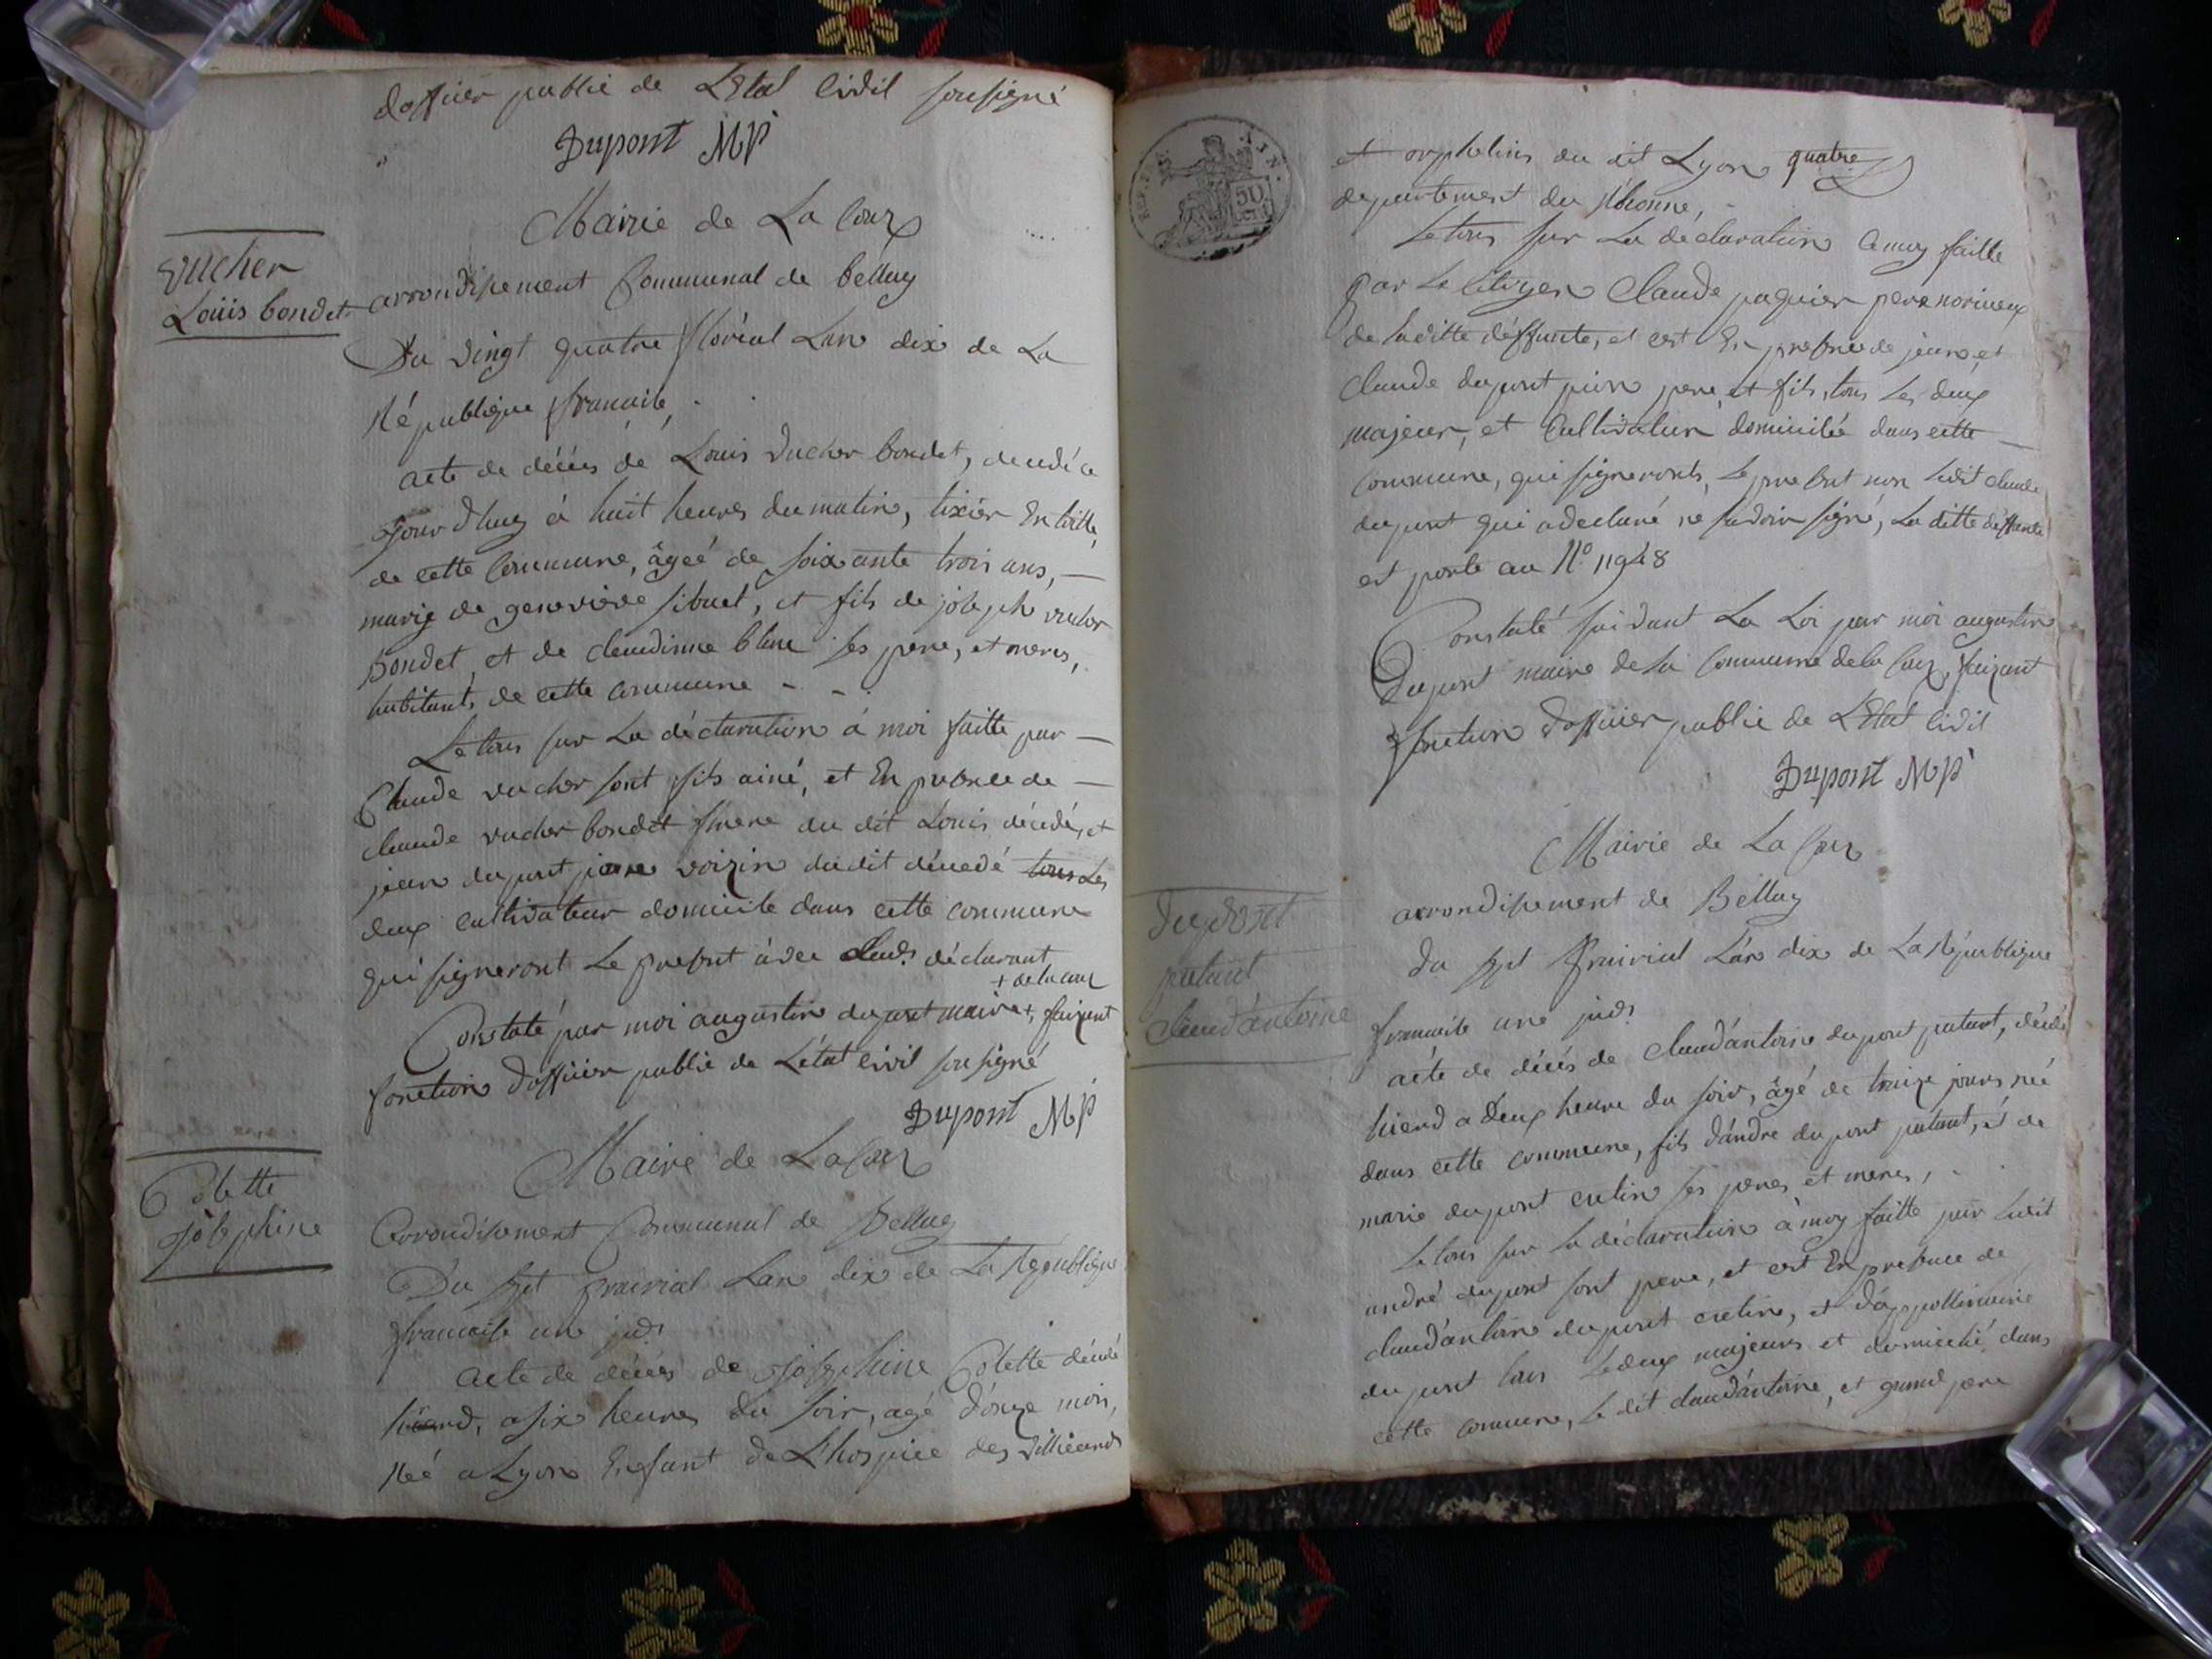 dofficier public de LEtat Civil sousigné
Dupont MP
Mairie de La Coux
vucher
Louis bondet
arrondisement Communal de belley
Du vingt quatre floréal Lan dix de La
République francaise,
acte de décés de Louis vucher bondet, decedé ce
jourdhuy à huit heures du matin, tixier En toille,
de cette Commune, âgeé de soixante trois ans,
marig de genevieve sibuet, et fils de joseph vucher
bondet, et de claudinne blanc ses pere, et meres,
habitants de cette commune
Le tous sur La déclaration à moi faitte par
Claude vucher sont fils ainé, et En presence de
claude vucher bondet frere du dit Louis décédé, et
jean dupont jeune voizin dudit décedé tous Les
deux cultivateur domicile dans cette commune
qui signeront Le presant àvec Claude déclarant
+ delacoux
Constaté par moi augustin dupont maire +, faizant
fonction dofficier public de Létat civil sousigné
Dupont MP
Mairie de LaCoux
Colette
josephine
arrondisement Communal de Belley
Du sept prairial Lan dix de La République
francaise une
acte de décés de josephine Colette décédé
hierd, a six heures du soir, agé d'onze mois,
Née a Lyon Enfant de Lhospice des villieards
et orphelins du dit Lyon quatre
departement du Rhonne,
Le tous sur La declaration amoy faitte
par Le Citoyen Claude paquier pere noricieux
de laditte déffunte, et cest En presence de jean, et
claude dupont pion pere, et fils, tous Les deux
majeur, et Cultivateur domicilié dans cette
commune, qui signeronts, Le presant non Ledit claude
dupont qui a declaré ne savoir signé, La ditte déffunte
est porté au N° 11948
Constaté suivant La Loi par moi augustin
Dupont maire de la Commune dela Coux, faizant
fonction dofficier public de LEtat Civil
Dupont MP
Mairie de La Coux
arrondisement de Belley
dupont
patant
claud'antoine
du sept Prairial L'an dix de La République
francaise une
acte de décés de claud'antoine dupont patant, décédé
hierd a deux heure du soir, âgé de traize jours, né
dans cette commune, fils d'andre dupont patant, et de
marie dupont cretin ses peres et meres,
Le tous sur la déclaration à moy faitte par Ledit
andré dupont sont pere, et cest En presence de
claud'antoine dupont cretin, et d'appollinaire
dupont tous Ledeux majeurs et domicilié dans
cette commune, le dit claud'antoine, et grand pere